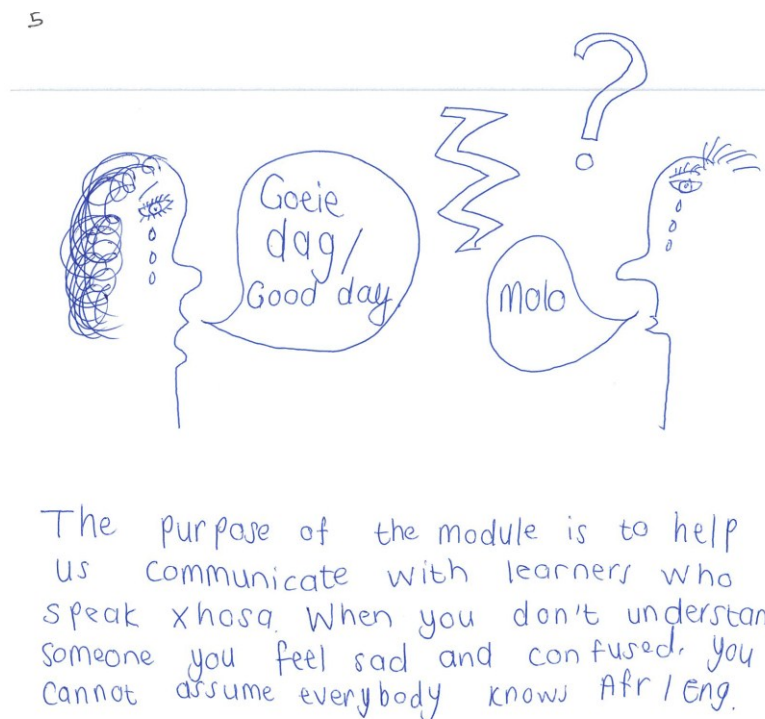 5
?
Goeie
dag/
Good day
Molo
The purpose of the module is to help
us communicate with learners who
speak xhosa. When you don't understan
someone you feel sad and confused. you
cannot assume everybody knows Afr/Eng.